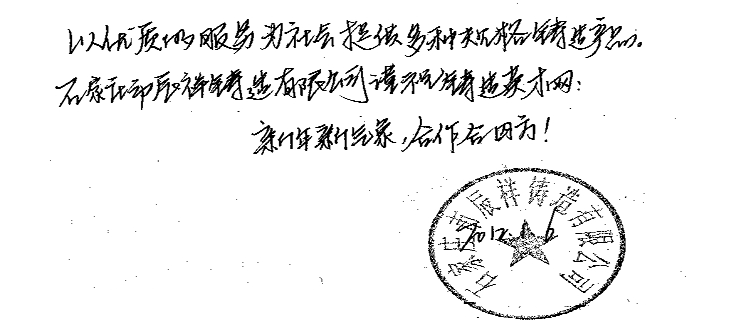 以优质的服务为社会提供多种规格铸造产品。
石家庄市辰祥铸造有限公司谨祝铸造英才网：
新年新气象，合作合因为！
石家庄市辰祥铸造有限公司
2012.1.6